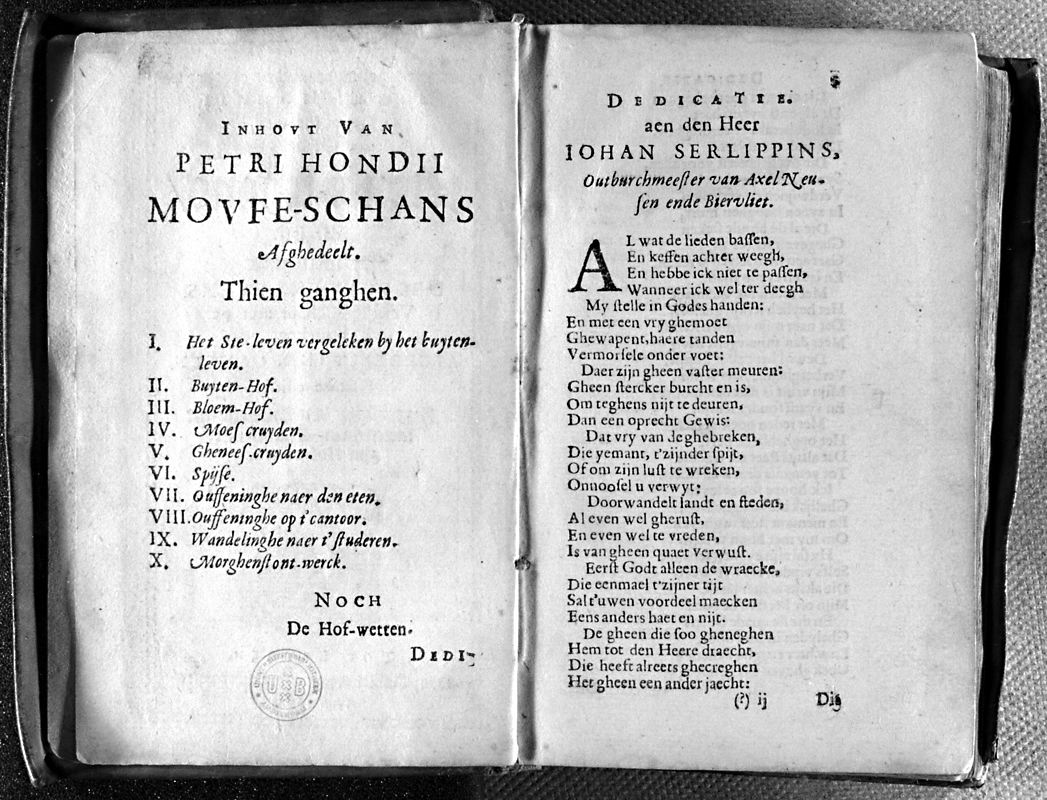 INHOVT VAN
PETRI HONDII
MOVFE-SCHANS
Afghedeelt.
Thien ganghen.
I. Het Ste-leven vergeleken by het buyten-
leven.
II. Buyten-Hof.
III. Bloem-Hof.
IV. Moes cruyden.
V. Ghenees-cruyden.
VI. Spijse.
VII. Ouffeninghe naer den eten.
VIII. Ouffeninghe op t'cantoor.
IX. Wandelinghe naer t'ſtuderen.
X. Morghenſtont-werck.
NOCH
De Hof-wetten.
DEDI-
UB
DEDICATIE.
aen den Heer
IOHAN SERLIPPINS,
Outburchmeeſter van Axel Neu-
ſen ende Biervliet.
AL wat de lieden baſſen,
En keffen achter weegh,
En hebbe ick niet te paſſen,
Wanneer ick wel ter deegh
My ſtelle in Godes handen:
En met een vry ghemoet
Ghewapent, haere tanden
Vermorſele onder voet:
Daer zijn gheen vaſter meuren:
Gheen ſtercker burcht en is,
Om teghens nijt te deuren,
Dan een oprecht Gewis:
Dat vry van de ghebreken,
Die yemant, t'zijnder ſpijt,
Of om zijn luſt te wreken,
Onnooſel u verwyt:
Doorwandelt landt en ſteden,
Al even wel gheruſt,
En even wel te vreden,
Is van gheen quaet verwuſt.
Eerſt Godt alleen de wraecke,
Die eenmael t'zijner tijt
Sal t'uwen voordeel maecken
Eens anders haet en nijt.
De gheen die ſoo gheneghen
Hem tot den Heere draecht,
Die heeft alreets ghecreghen
Het gheen een ander jaecht:
(?) ij Die